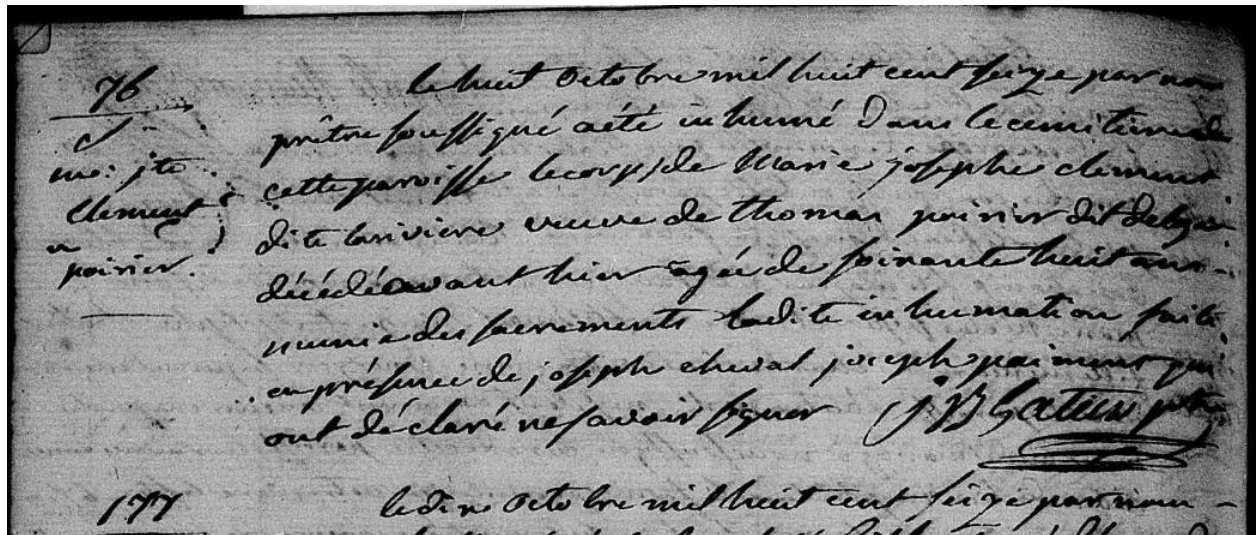 76
S
me: jte
Clement
v
poirier.
le huit Octobre mil huit cent seize par nou
prêtre soussigné a été inhumé dans le cimitiere de
cette paroisse le corps de Marie josephe clement
dite lariviere veuve de thomas poirier dit
décédée avant hier agée de soixante huit ans
munie des sacrements ladite inhumation faite
en présence de joseph cheval joseph paiment qui
ont déclaré ne savoir signer J B Gatien ptre
177
le dix Octobre mil huit cent seize par nou